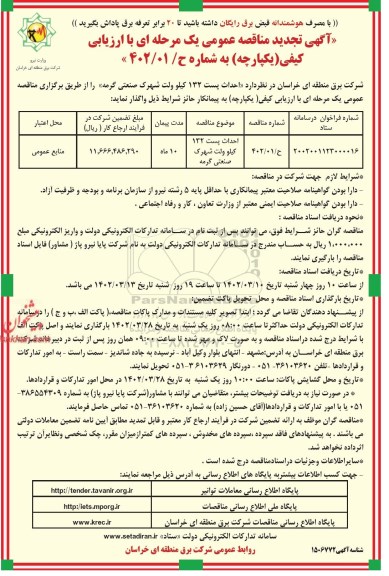 (( با مصرف هوشمندانه قبض برق رایگان داشته باشید تا ۲۰ برابر تعرفه برق پاداش بگیرید ))
«آگهی تجدید مناقصه عمومی یک مرحله ای با ارزیابی
کیفی(یکپارچه) به شماره ح/۴۰۲/۰۱ »
وزارت نیرو
شرکت برق منطقه ای خراسان
شرکت برق منطقه ای خراسان در نظردارد «احداث پست ۱۳۲ کیلو ولت شهرک صنعتی گرمه» را از طریق برگزاری مناقصه
عمومی یک مرحله ای با ارزیابی کیفی(یکپارچه) به پیمانکار حائز شرایط ذیل واگذار نماید:
شماره فراخوان درسامانه ستاد | شماره مناقصه | موضوع مناقصه | مدت پیمان | مبلغ تضمین شرکت در فرآیند ارجاع کار ( ریال) | محل اعتبار
۲۰۰۲۰۰۱۱۲۳۰۰۰۰۱۶ | ح/۴۰۲/۰۱ | احداث پست ۱۳۲ کیلو ولت شهرک صنعتی گرمه | ۱۰ ماه | ۱۱,۶۶۶,۴۸۶,۲۹۰ | منابع عمومی
*شرایط لازم جهت شرکت در مناقصه:
- دارا بودن گواهینامه صلاحیت معتبر پیمانکاری با حداقل پایه ۵ رشته نیرو از سازمان برنامه و بودجه و ظرفیت آزاد.
- دارا بودن گواهینامه صلاحیت ایمنی معتبر از وزارت تعاون ، کار و رفاه اجتماعی .
*نحوه دریافت اسناد مناقصه :
مناقصه گران حائز شرایط فوق، می توانند پس از ثبت نام در سامانه تدارکات الکترونیکی دولت و واریز الکترونیکی مبلغ
۱,۰۰۰,۰۰۰ ریال به حساب مندرج در سامانه تدارکات الکترونیکی دولت به نام شرکت پایا نیرو پاژ ( مشاور) فایل اسناد
مناقصه را بارگیری نمایند.
*تاریخ دریافت اسناد مناقصه:
از ساعت ۱۰ روز چهار شنبه تاریخ ۱۴۰۲/۰۳/۱۰ تا ساعت ۱۹ روز شنبه تاریخ ۱۴۰۲/۰۳/۱۳ می باشد.
*تاریخ بارگذاری اسناد مناقصه و محل تحویل پاکت تضمین:
از پیشنهاد دهندگان تقاضا می گردد : ابتدا تصویر کلیه مستندات و مدارک پاکات مناقصه،( پاکت الف ،ب و ج ) را درسامانه
تدارکات الکترونیکی دولت حداکثر تا ساعت ۰۸:۰۰ روز یک شنبه به تاریخ ۱۴۰۲/۰۳/۲۸ بارگذاری نمایند و اصل پاکت الف
با شرایط درج شده دراسناد مناقصه و به صورت لاک و مهر شده تا ساعت ۰۹:۰۰ همان روز پس از ثبت در دبیرخانه شرکت
برق منطقه ای خراسان به آدرس:مشهد - انتهای بلوار وکیل آباد - نرسیده به جاده شاندیز - سمت راست - به امور تدارکات
و قراردادها -تلفن ۳۶۱۰۳۶۲۰-۰۵۱ - دورنگار ۳۶۱۰۳۶۲۹-۰۵۱ تحویل نمایند.
*تاریخ و محل گشایش پاکات: ساعت ۱۰:۰۰ روز یک شنبه به تاریخ ۱۴۰۲/۰۳/۲۸ در محل امور تدارکات و قراردادها.
* در صورت نیاز به دریافت توضیحات بیشتر، متقاضیان می توانند با مشاور(شرکت پایا نیرو پاژ) به شماره ۳۸۶۵۵۴۳۰۹-
۰۵۱ یا با امور تدارکات و قراردادها(آقای حسین زاده) به شماره ۳۶۱۰۳۶۲۰-۰۵۱ تماس حاصل فرمایند.
*مناقصه گران موظف به ارائه تضمین شرکت در فرآیند ارجاع کار معتبر و قابل تمدید مطابق آیین نامه تضمین معاملات دولتی
می باشند . به پیشنهادهای فاقد سپرده ،سپرده های مخدوش ، سپرده های کمترازمیزان مقرر، چک شخصی ونظایرآن ترتیب
اثرداده نخواهد شد.
*سایراطلاعات وجزئیات دراسنادمناقصه درج شده است .
*- جهت کسب اطلاعات بیشتربه پایگاه های اطلاع رسانی به آدرس ذیل مراجعه نمایند:
پایگاه اطلاع رسانی معاملات توانیر | http://tender.tavanir.org.ir
پایگاه ملی اطلاع رسانی مناقصات | http://iets.mporg.ir
پایگاه اطلاع رسانی مناقصات شرکت برق منطقه ای خراسان | www.krec.ir
سامانه تدارکات الکترونیکی دولت «ستاد» www.setadiran.ir
روابط عمومی شرکت برق منطقه ای خراسان
شناسه آگهی ۱۵۰۶۷۷۲